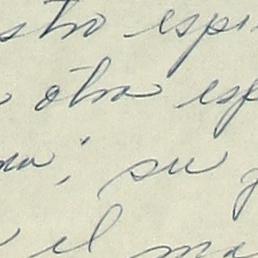 stro espi
otra esp
na", su
el ma